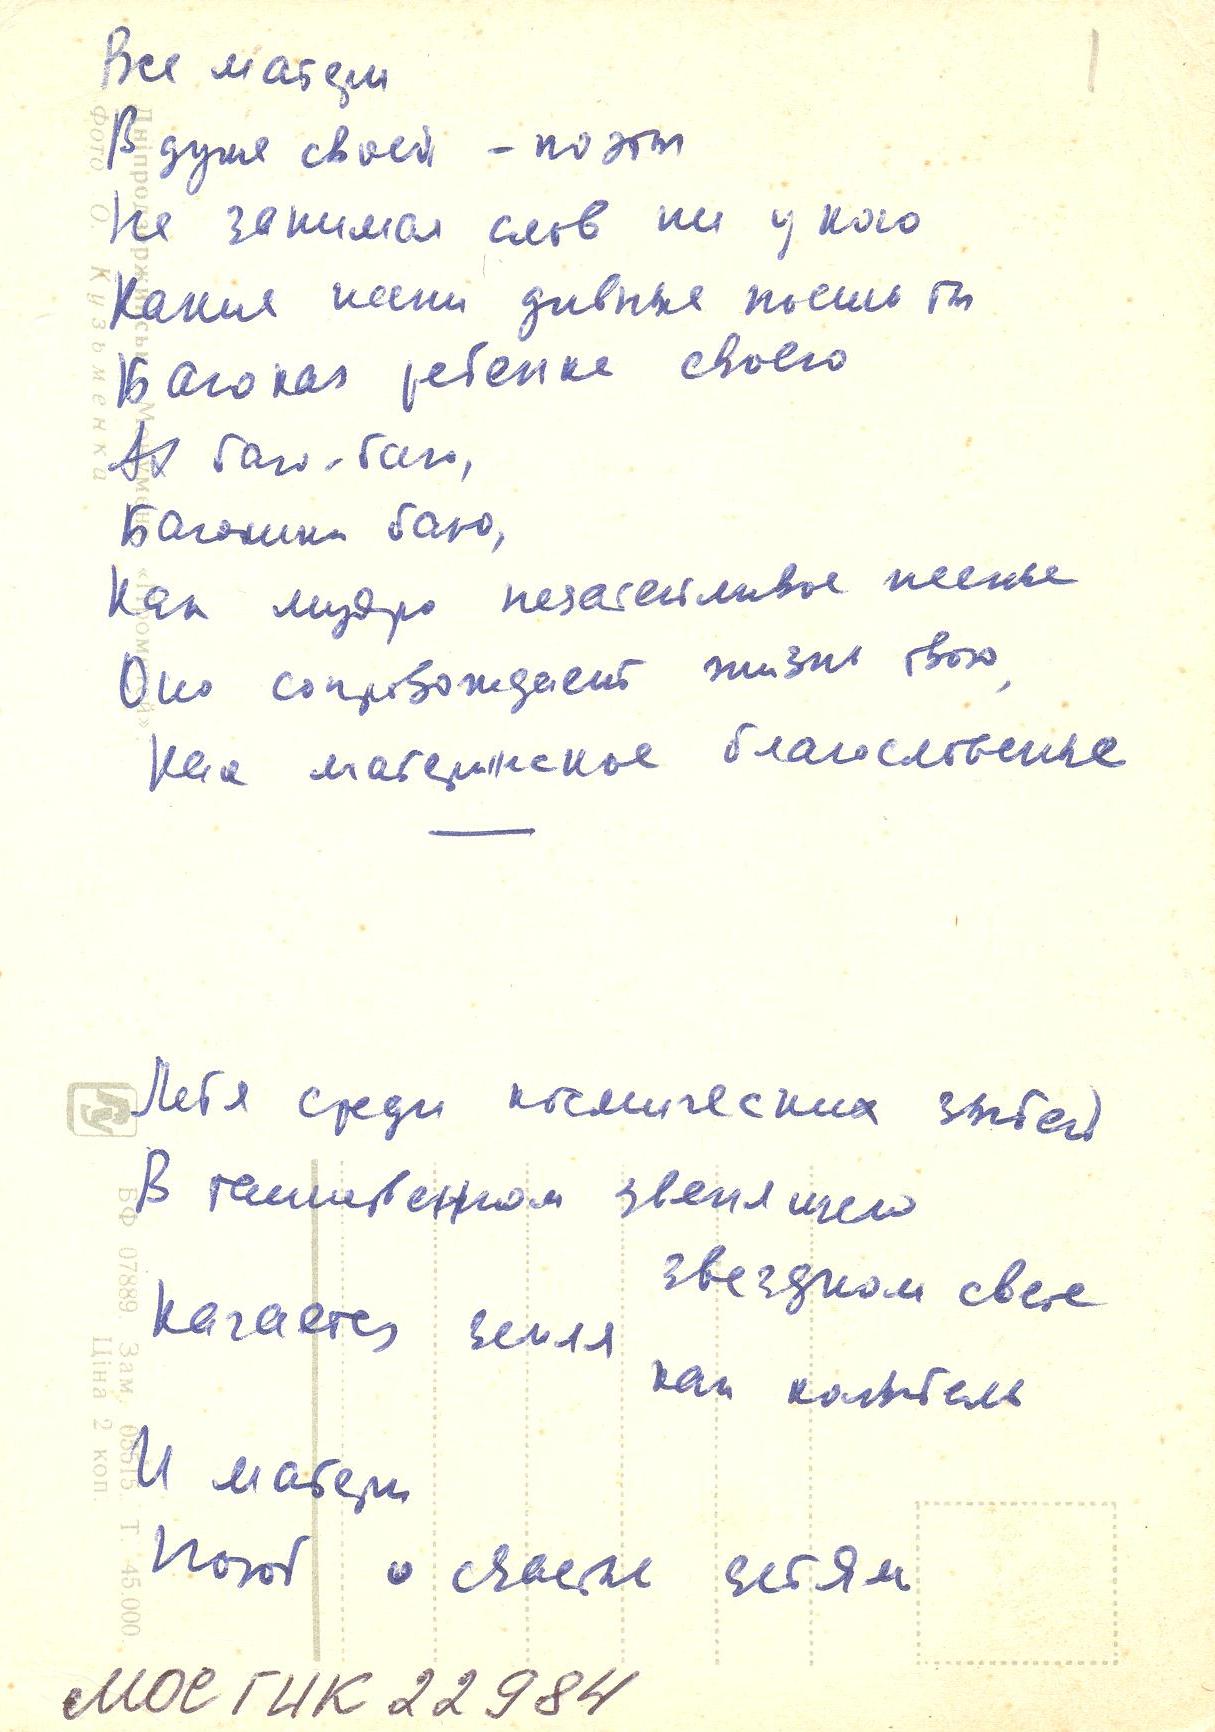 Все матери
В душе своей - поэты
Не занимая слов ни у кого
Какие песни дивные поешь ты
Баюкая ребенка своего
Ах баю-баю,
Баюшки баю,
Как мудро незатейливое пенье
Оно сопровождает жизнь твою,
Как материнское благословенье
Летя среди космических зыбей
В таинственном звенящего
звездном свете
Качается земля
как колыбель
И матери
Поют о счастье детям
МОСГИК 22984
Дніпродзержинськ. Монумент «Прометей».
Фото О. Кузьменка
БФ 07889. Зам. 03515 Т. 45.000
Ціна 2 коп.